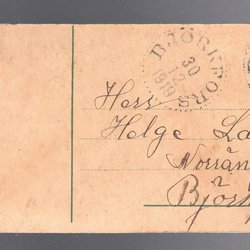 BJÖRKFORS
30
12
1919
Herr
Helge La
Norrän
Björ